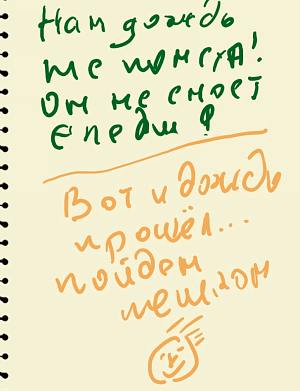 Нам дождь
не помеха!
Он не смоет
следы!
Вот и дождь
прошёл...
пойдем
пешком